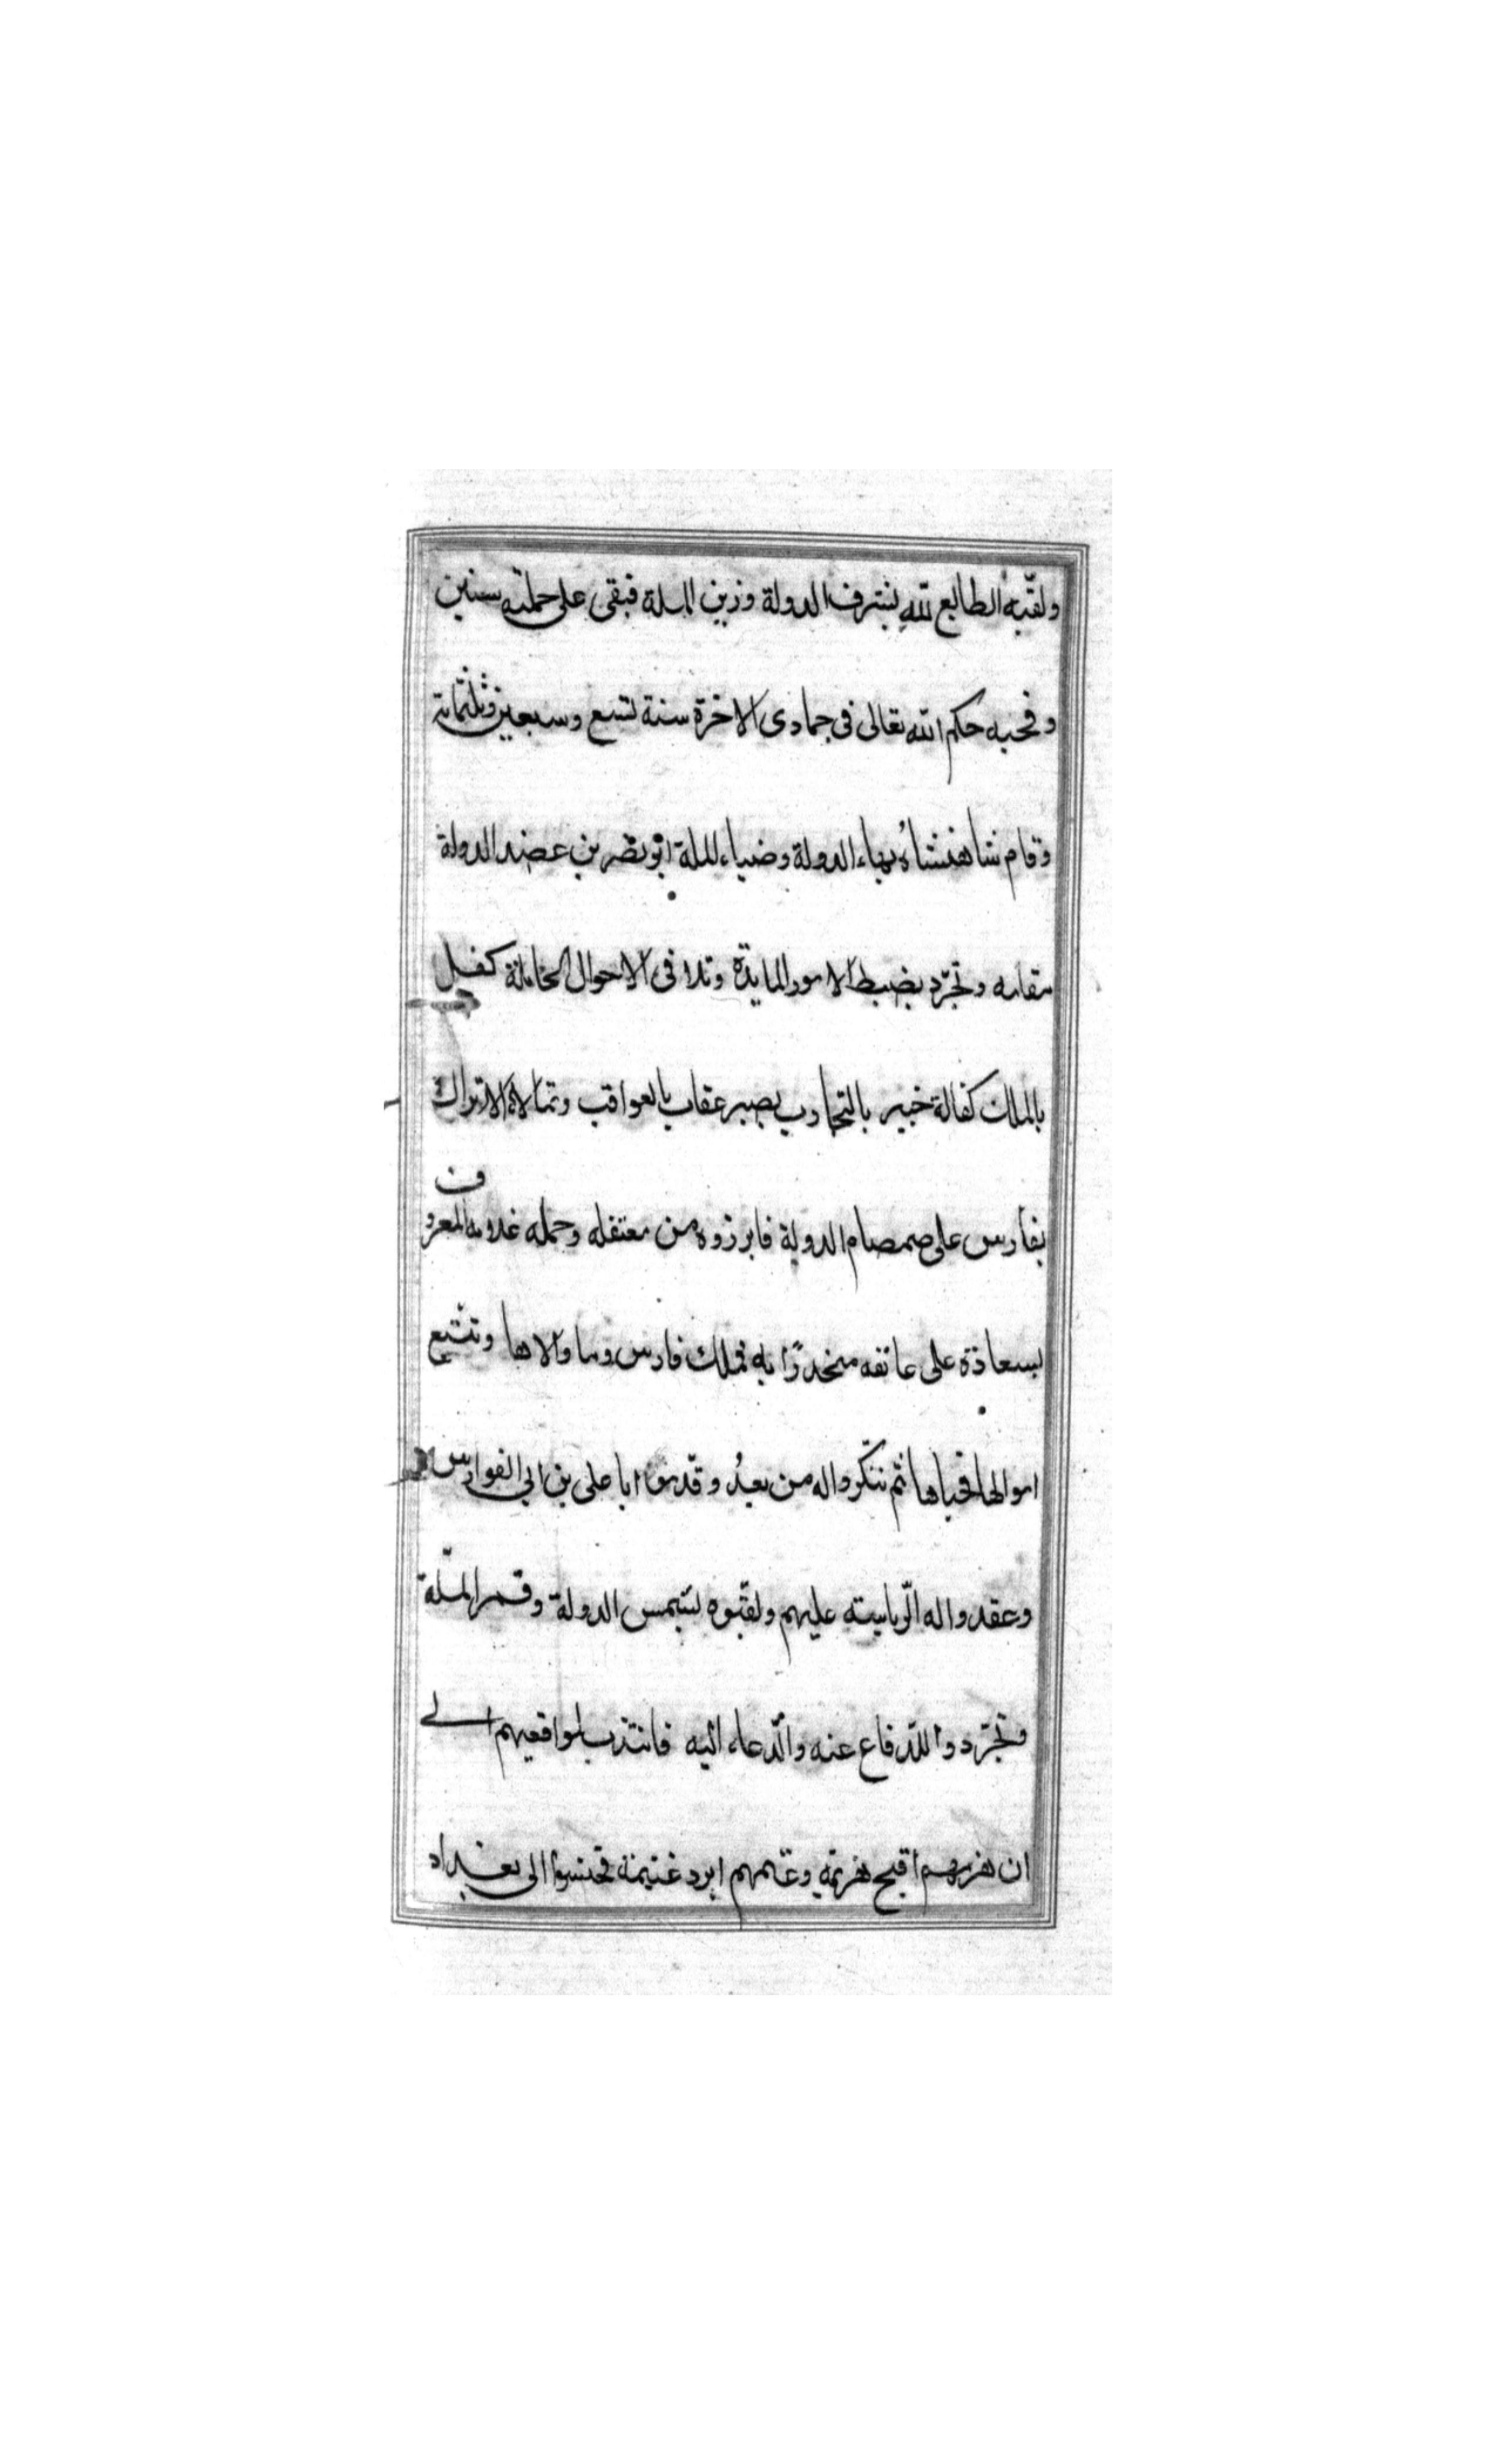 ولقّبه الطالع لله بشرف الدولة وزين الملة فبقى على حملته سنين
وفجبه حكم الله تعالى فى جمادى الاخرة سنة تسع وسبعين وثلثمائة
وقام شاهنشاه بهاء الدولة وضياء الملة ابو نصر بن عضد الدولة
مقامه وتجرّد بضبط الامور المايدة وتلافى الاحوال الخاملة كفيل
بالملك كفالة خبير بالتجارب بصير عقاب بالعواقب وتمالاة الاتراك
بفارس على صمصام الدولة فابرزوه من معتقله وحمله غلامه المعروف
بسعاذة على عاتقه منحدرًا به فملك فارس وما والاها وتتبع
اموالها فجباها ثم تنكّروا له من بعدُ وقدموا ابا على بن ابى الفوارس
وعقدوا له الرياسة عليهم ولقّبوه بشمس الدولة وقمر الملّة
وتجرّدوا للدّفاع عنه والدّعاء اليه فانتدب لمواقعيهم الى
ان هزمهم اقبح هزيمة وغنمهم ابرد غنيمة فخنسوا الى بغداد